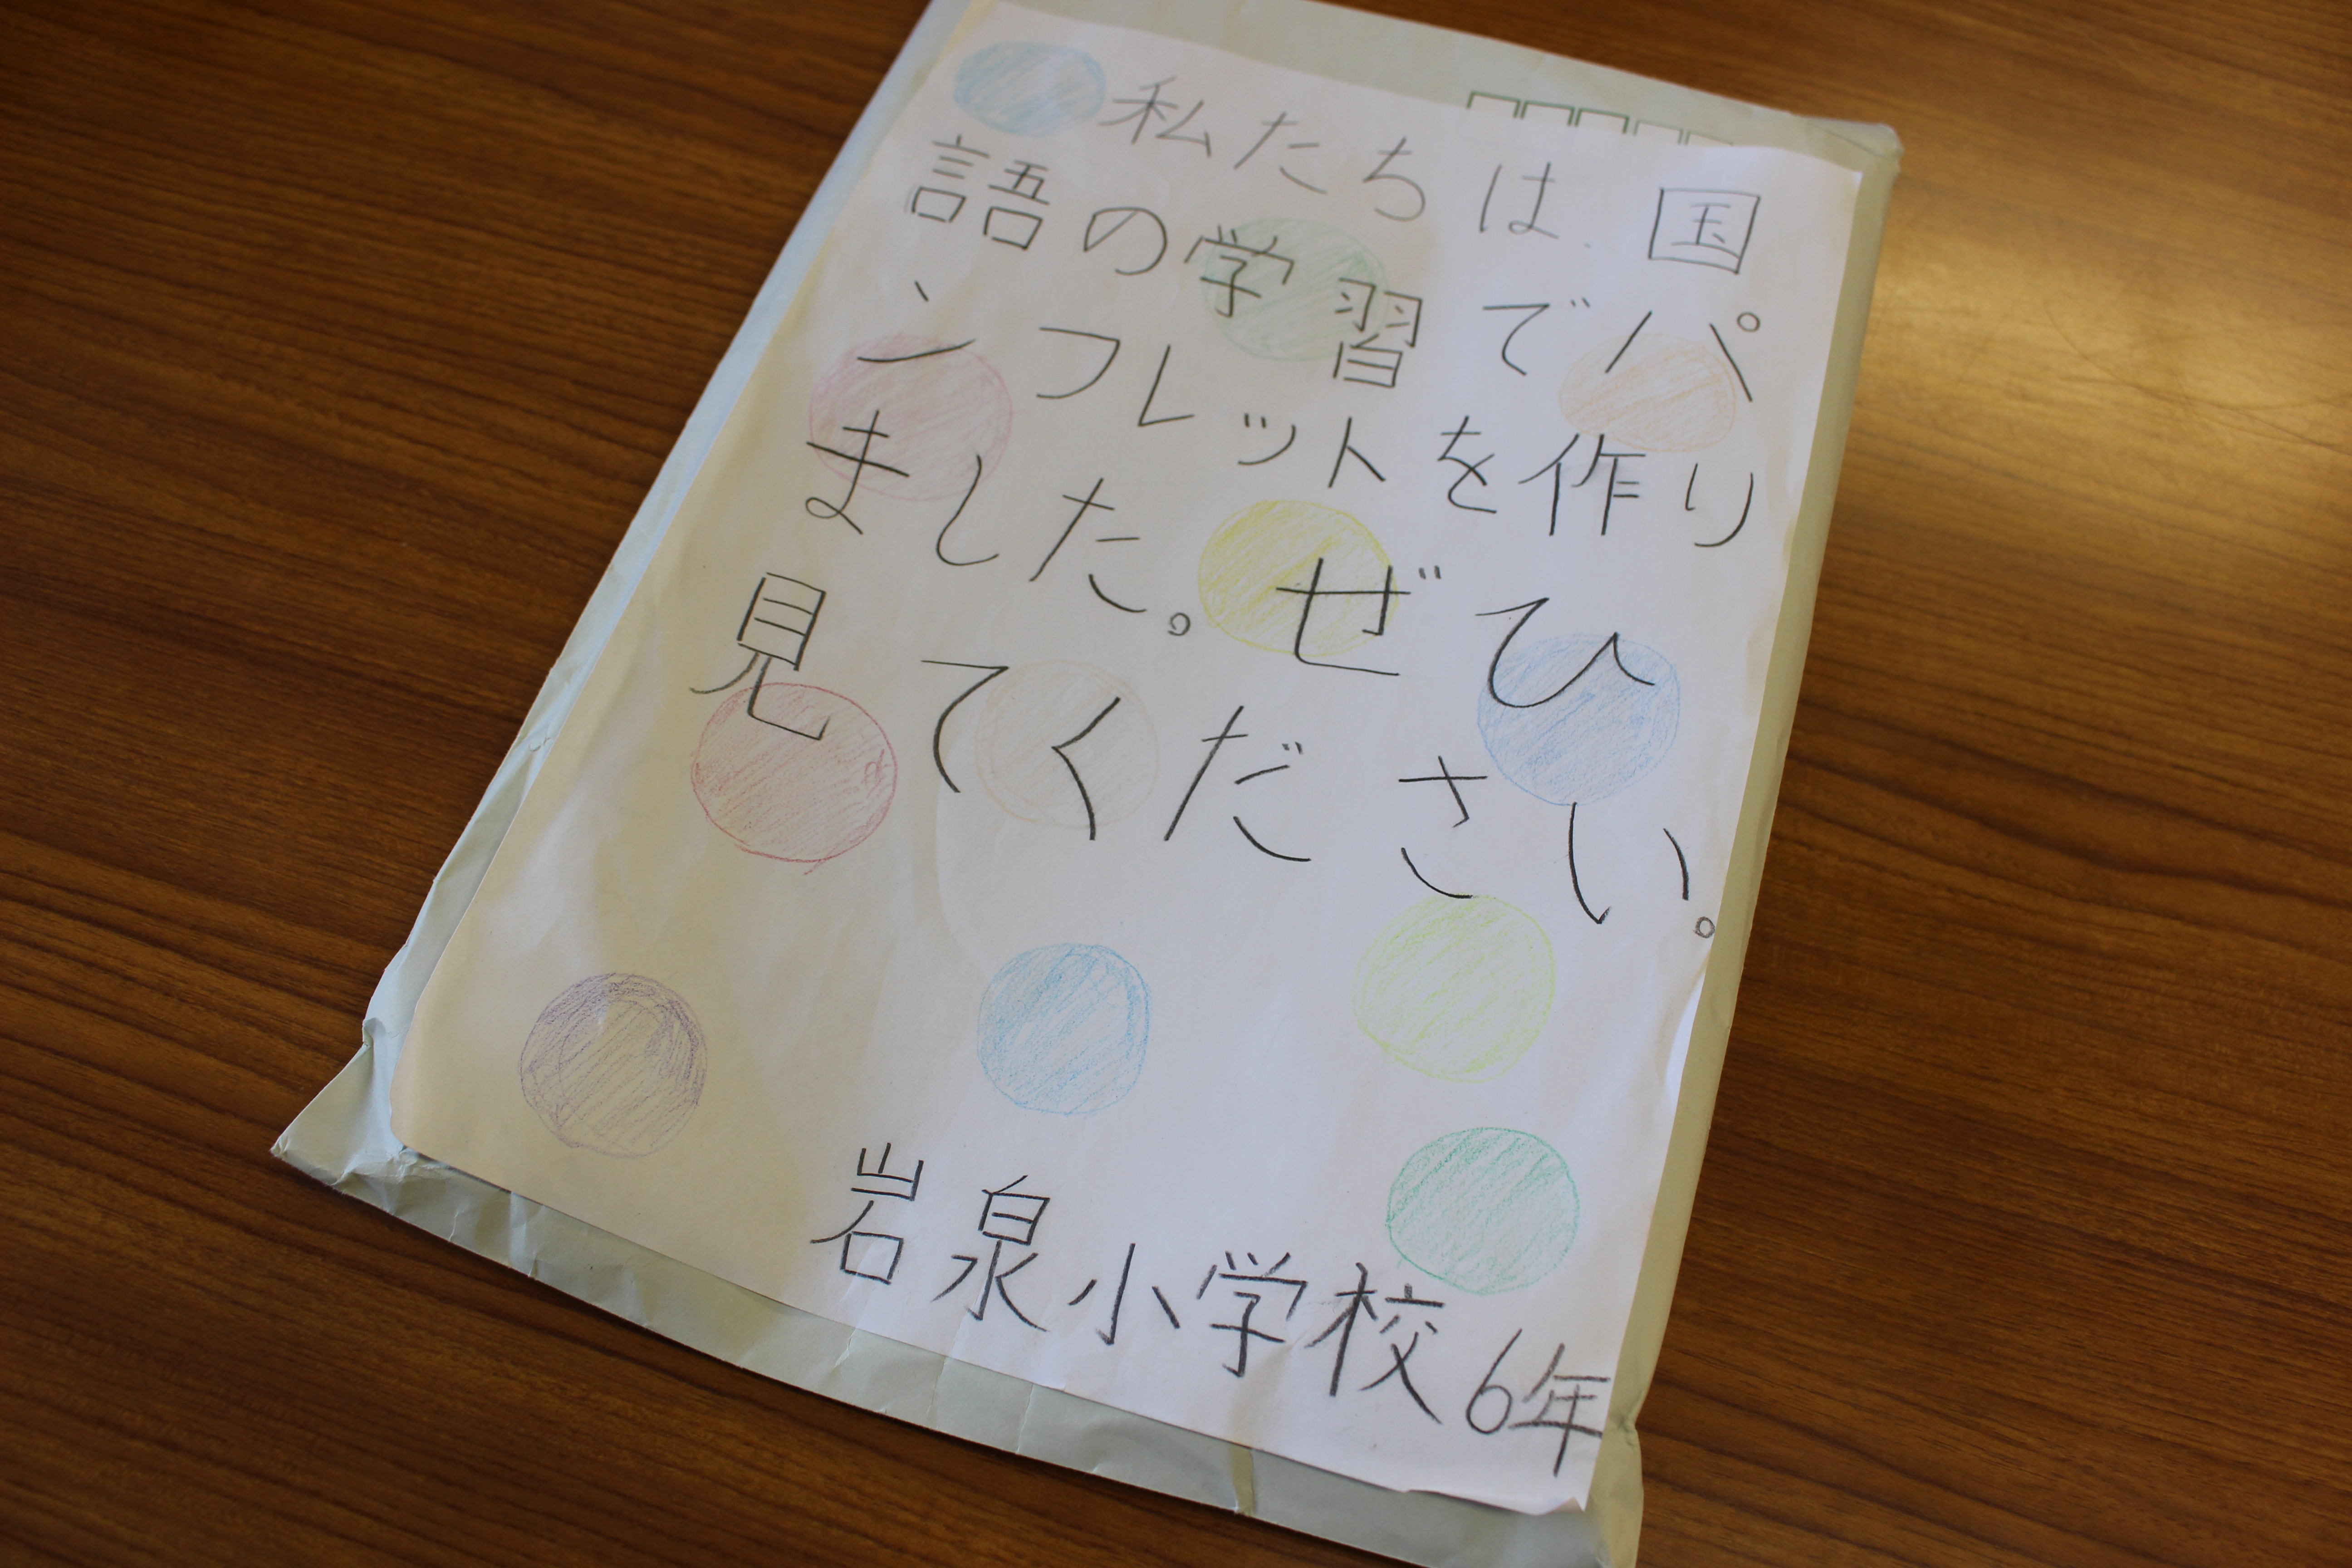 私たちは、国
語の学習でパ
ンフレットを作り
ました。ぜひ
見てください。
岩泉小学校6年